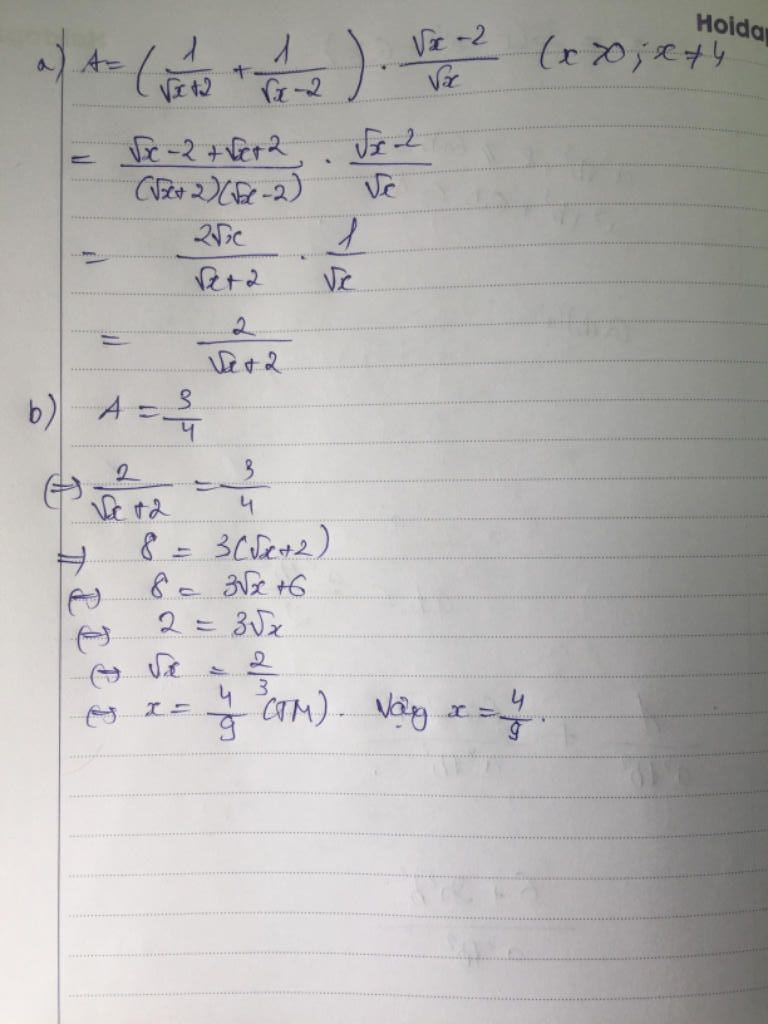 Hoidap
a) A = (1/(√x+2) + 1/(√x-2)) · (√x-2)/√x (x>0; x≠4
= (√x-2+√x+2)/((√x+2)(√x-2)) · (√x-2)/√x
= 2√x/(√x+2) · 1/√x
= 2/(√x+2)
b) A = 3/4
⇔ 2/(√x+2) = 3/4
⇒ 8 = 3(√x+2)
⇔ 8 = 3√x+6
⇔ 2 = 3√x
⇔ √x = 2/3
⇔ x = 4/9 (TM). Vậy x = 4/9.